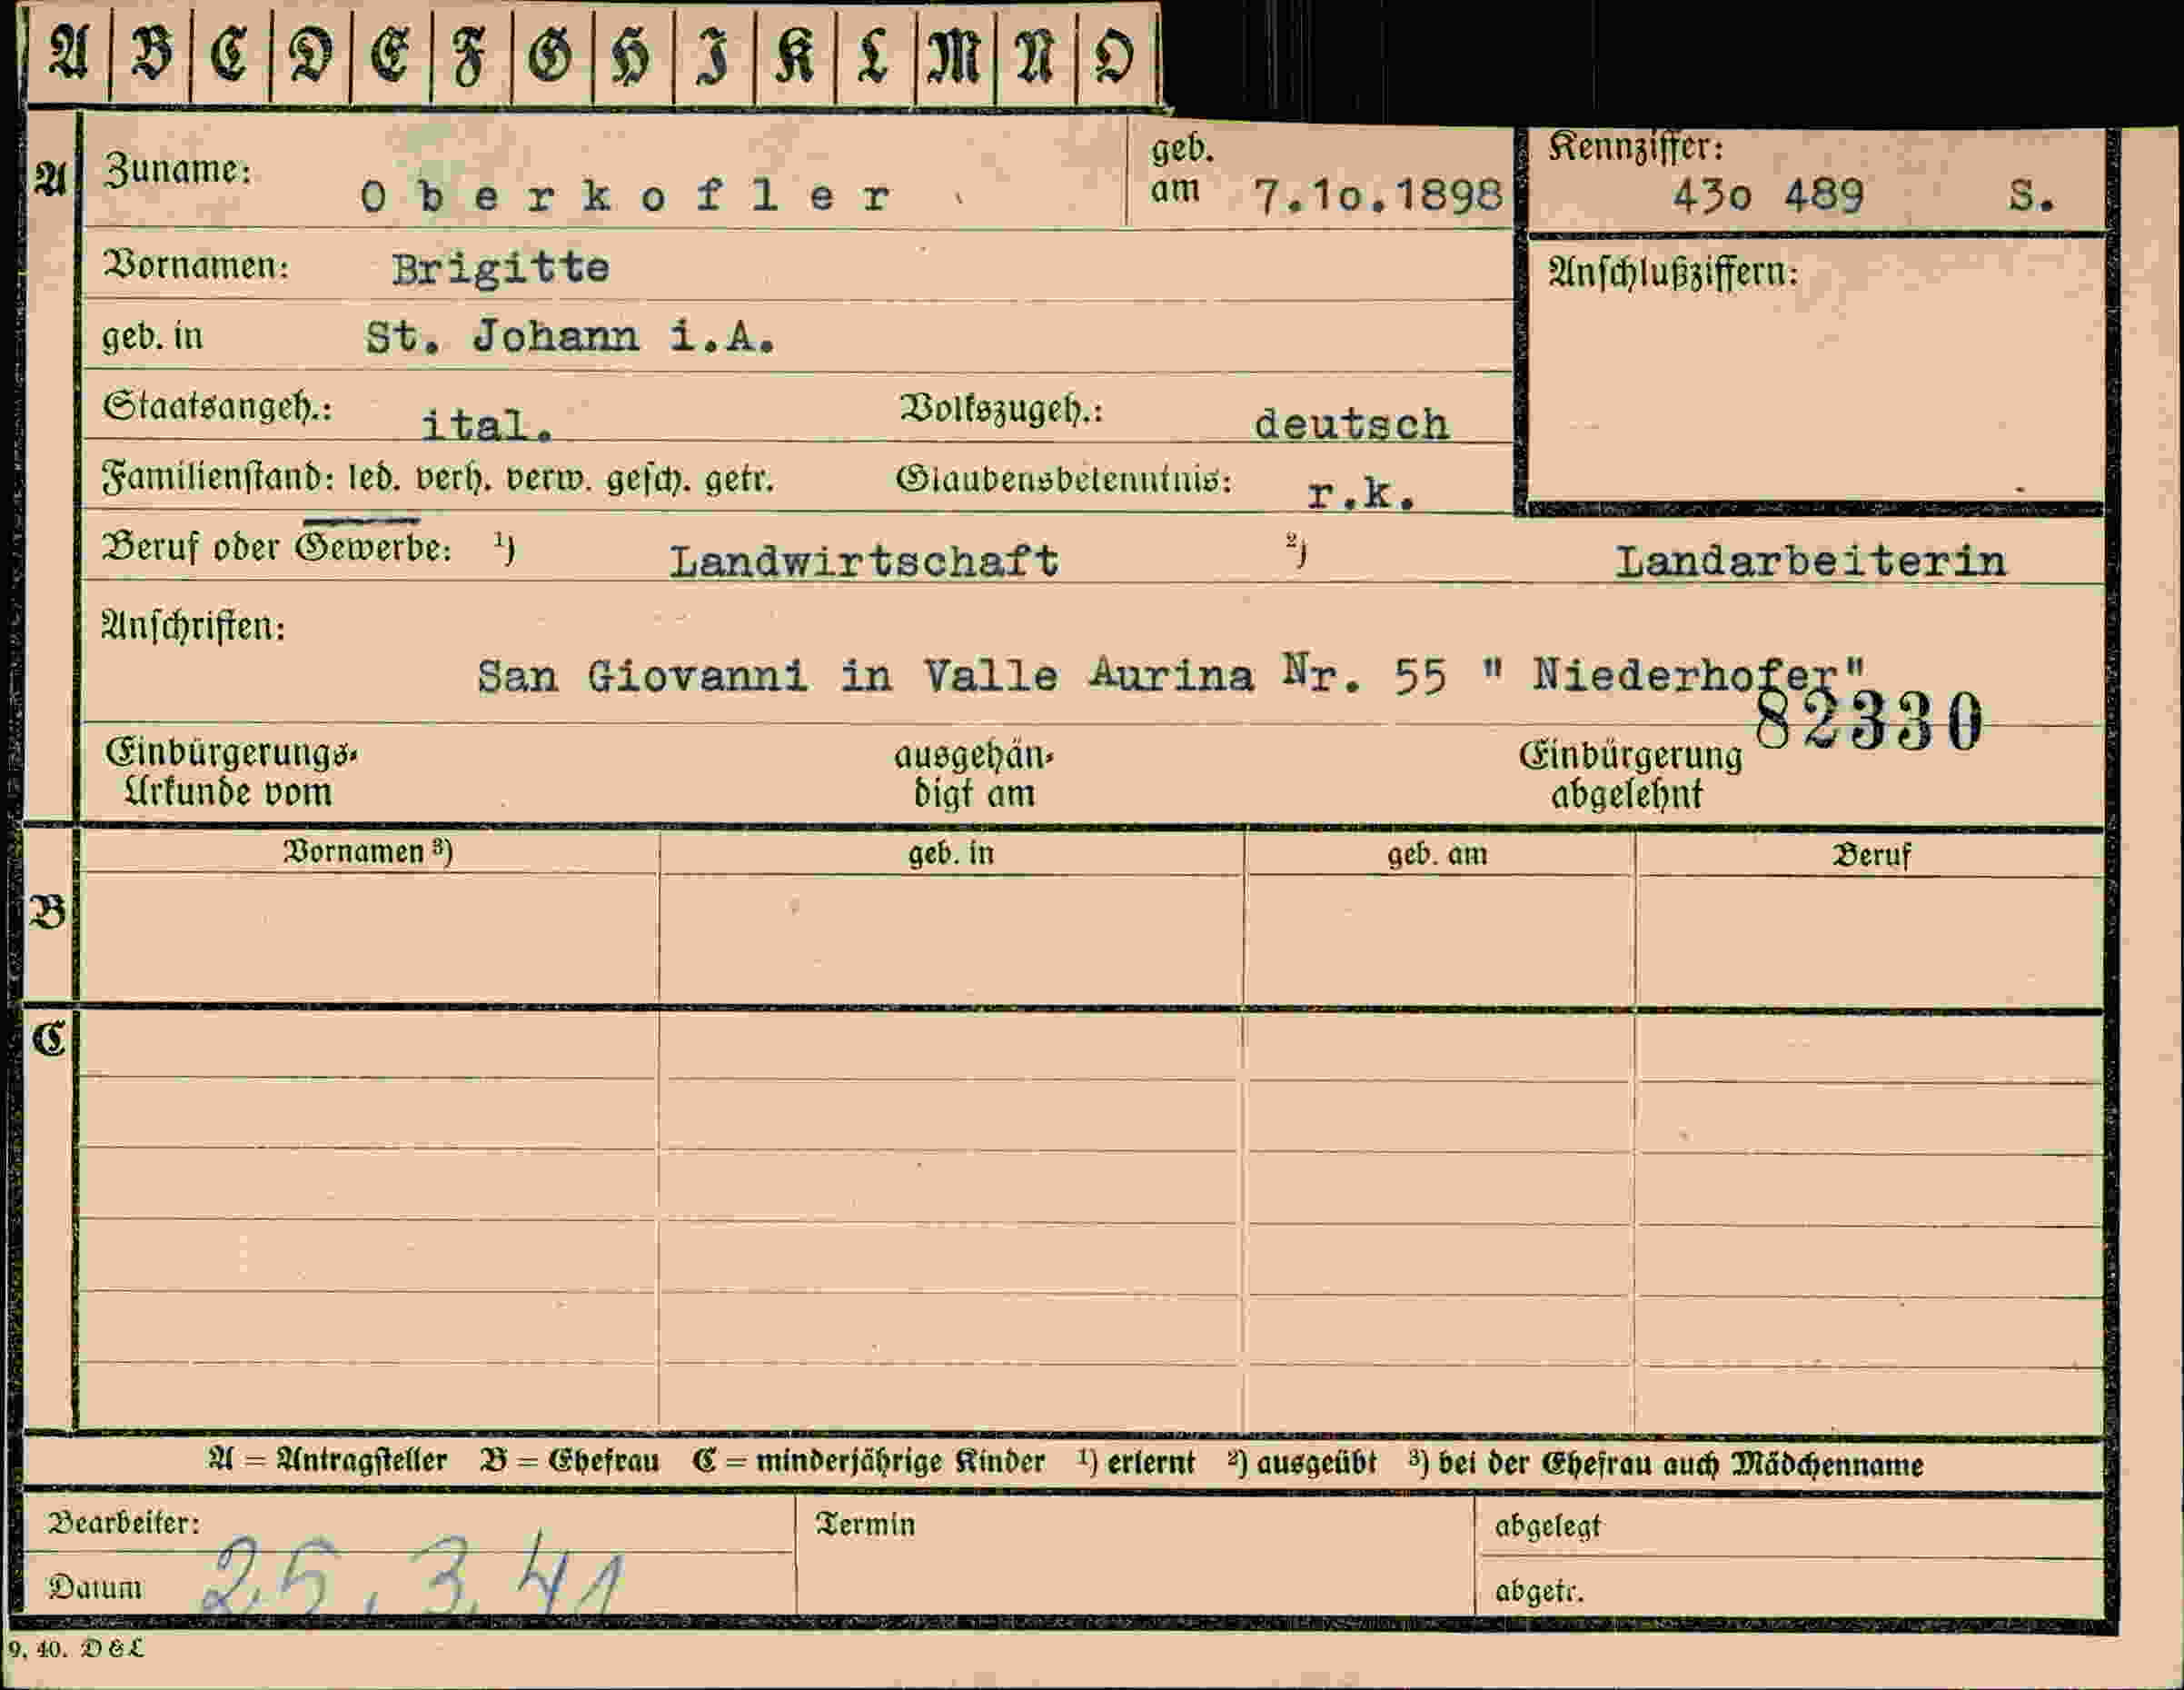 A B C D E F G H I K L M N O
A Zuname: Oberkofler geb. am 7.1o.1898 Kennziffer: 43o 489 S.
Vornamen: Brigitte Anschlußziffern:
geb. in St. Johann i.A.
Staatsangeh.: ital. Volkszugeh.: deutsch
Familienstand: led. verh. verw. gesch. getr. Glaubensbekenntnis: r.k.
Beruf oder Gewerbe: ¹) Landwirtschaft ²) Landarbeiterin
Anschriften:
San Giovanni in Valle Aurina Nr. 55 " Niederhofer"
82330
Einbürgerungs- ausgehän- Einbürgerung
Urkunde vom digt am abgelehnt
Vornamen ³) geb. in geb. am Beruf
B
C
A = Antragsteller B = Ehefrau C = minderjährige Kinder ¹) erlernt ²) ausgeübt ³) bei der Ehefrau auch Mädchenname
Bearbeiter: Termin abgelegt
Datum 25.3.41 abgetr.
9. 40. D & L